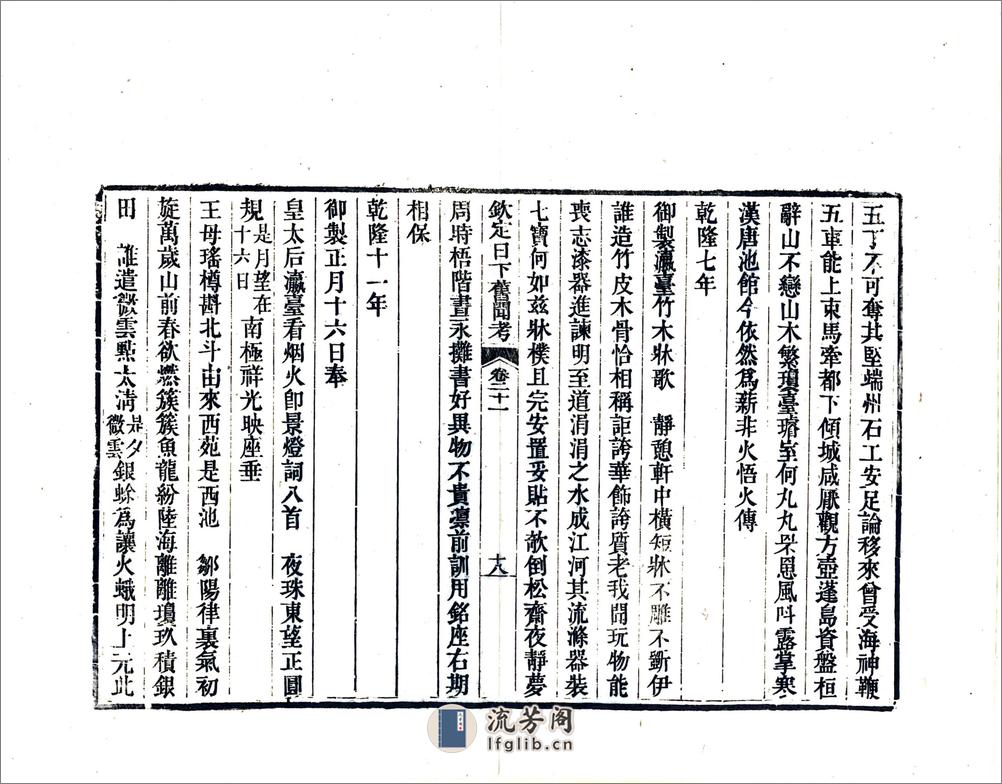 五丁不可奪其堅端州石工安足論移來曾受海神鞭
五車能上束馬牽都下傾城咸厭觀方壺蓬島資盤桓
辭山不戀山木繁瓊臺璿室何丸丸罘罳風呌露掌寒
漢唐池館今依然爲薪非火悟火傳
乾隆七年
御製瀛臺竹木牀歌 靜憩軒中橫短牀不雕不斵伊
誰造竹皮木骨恰相稱詎誇華飾誇質老我聞玩物能
喪志漆器進諫明至道涓涓之水成江河其流滌器裝
七寶何如兹牀樸且完安置妥貼不欹倒松齋夜靜夢
欽定日下舊聞考 卷二十一 十八
周時梧階晝永攤書好異物不貴禀前訓用銘座右期
相保
乾隆十一年
御製正月十六日奉
皇太后瀛臺看烟火卽景燈詞八首 夜珠東望正圓
規是月望在十六日 南極祥光映座垂
王母瑤樽斟北斗由來西苑是西池 鄒陽律裏氣初
旋萬歲山前春欲燃簇簇魚龍紛陸海離離瓊玖積銀
田 誰遣微雲點太淸是夕微雲銀蜍爲讓火蛾明上元此
流芳阁
lfglib.cn